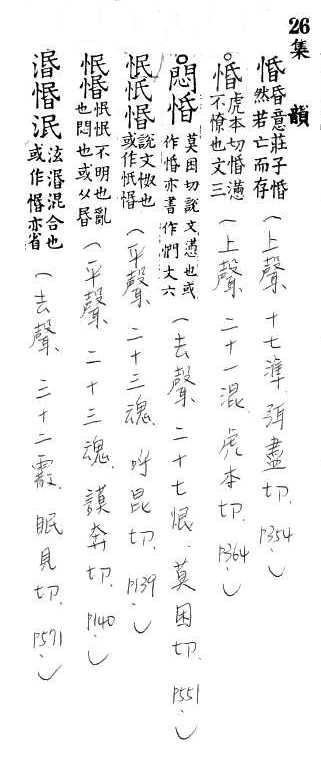 26集韻
惛惛意莊子惛然若亡而存（上聲、十七準、弭盡切、P354.）
惛虎本切惛懣不憭也文三（上聲、二十一混、虎本切、P364.）
悶惛莫困切說文懣也或作惛亦書作們文六（去聲、二十七恨、莫困切、P551.）
惛說文怓也或作惛（平聲、二十三魂、呼昆切、P139.）
惛不明也亂也悶也或从昬（平聲、二十三魂、謨奔切、P140.）
泯泫湣混合也或作惛亦省（去聲、三十二霰、眠見切、P571.）